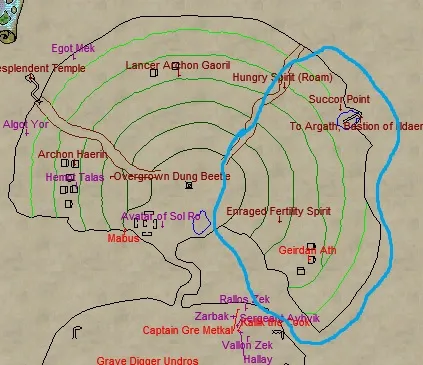 Egot Mek
esplendent Temple
Lancer Archon Gaoril
Hungry Spirit (Roam)
Succor Point
Algot Yor
To Argath, Bastion of Ildaer
Archon Haerin
Hemut Talas
Overgrown Dung Beetle
Avatar of Sol Ro
Enraged Fertility Spirit
Mabus
Geirdan Ath
Rallos Zek
Zarbak
Sergeant
Captain Gre Metkal
Cook
Vallon Zek
Grave Digger Undros
Hallay